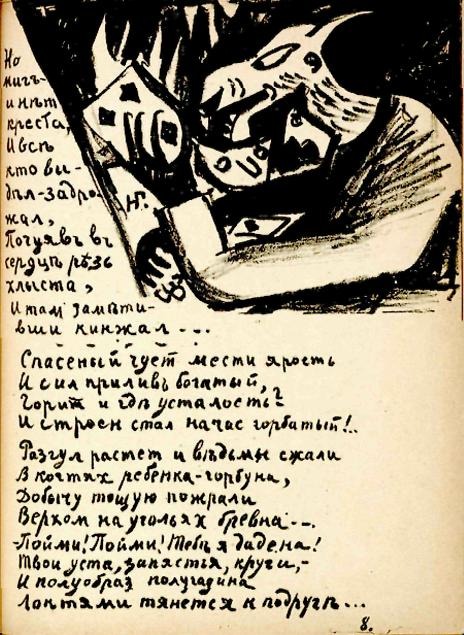 Но
мигъ-
и нѣт
креста,
И всѣ
кто ви-
дѣл-задро-
жал,
Почуявъ въ
сердцѣ рѣзь
хлыста,
И там замѣти-
вши кинжал - - -
Спасеный чует мести ярость
И сил приливъ богатый,
Горит и гдѣ усталость?
И строен стал на час горбатый!..
Разгул растет и вѣдьмы сжали
В когтях ребенка-горбуна,
Добычу тощую пожрали
Верхом на угольях бревна -..
-Пойми! Пойми! Тебѣ я дадена!
Твои уста, запястья, круги,-
И полуобраз полугадина
Локтями тянется к подругѣ...
8.